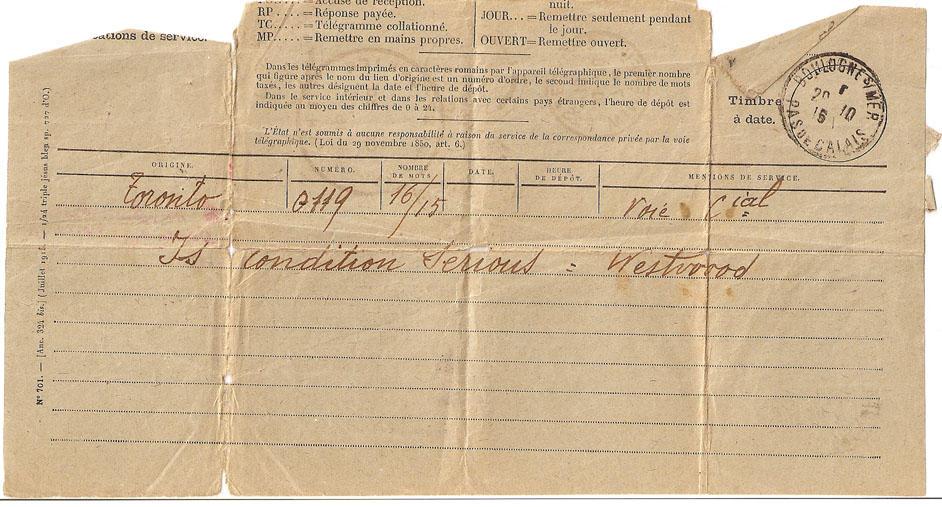 Accuse de réception.
RP.....=Réponse payée.
TC.....=Télégramme collationné.
MP.....=Remettre en mains propres.
nuit.
JOUR...=Remettre seulement pendant
le jour.
OUVERT=Remettre ouvert.
ations de service.
Dans les télégrammes imprimés en caractères romains par l'appareil télégraphique, le premier nombre
qui figure après le nom du lieu d'origine est un numéro d'ordre, le second indique le nombre de mots
taxés, les autres désignent la date et l'heure de dépôt.
Dans le service intérieur et dans les relations avec certains pays étrangers, l'heure de dépôt est
indiquée au moyen des chiffres de 0 à 24.
L'État n'est soumis à aucune responsabilité à raison du service de la correspondance privée par la voie
télégraphique. (Loi du 29 novembre 1850, art. 6.)
Timbre
à date.
BOULOGNE S MER
20 10
16
PAS DE CALAIS
ORIGINE. NUMÉRO. NOMBRE DE MOTS DATE. HEURE DE DÉPÔT. MENTIONS DE SERVICE.
Toronto 16/15 Voie Cial
Is condition Serious = Westwood
N° 701. — [Ann. 324 bis.] (Juillet — 1/24 triple jésus bleu sp. 727 d'O.)